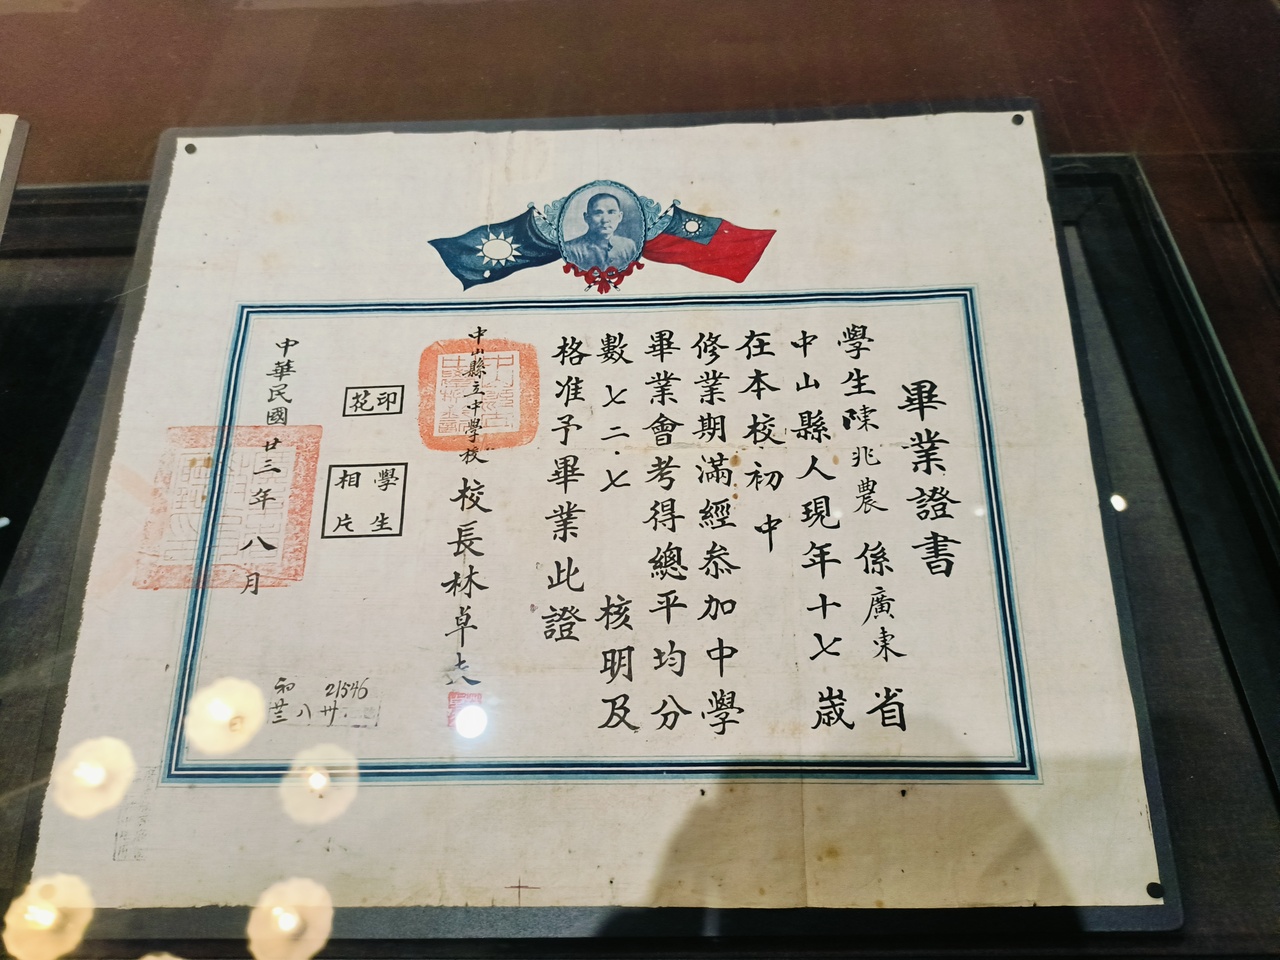 畢業證書
學生陳兆農係廣東省
中山縣人現年十七歲
在本校初中
修業期滿經叅加中學
畢業會考得總平均分
數七二.七 核明及
格准予畢業此證
中山縣立中學校校長林卓夫
印花
學生
相片
中華民國廿三年八月
初 21546
廿三 八 卅